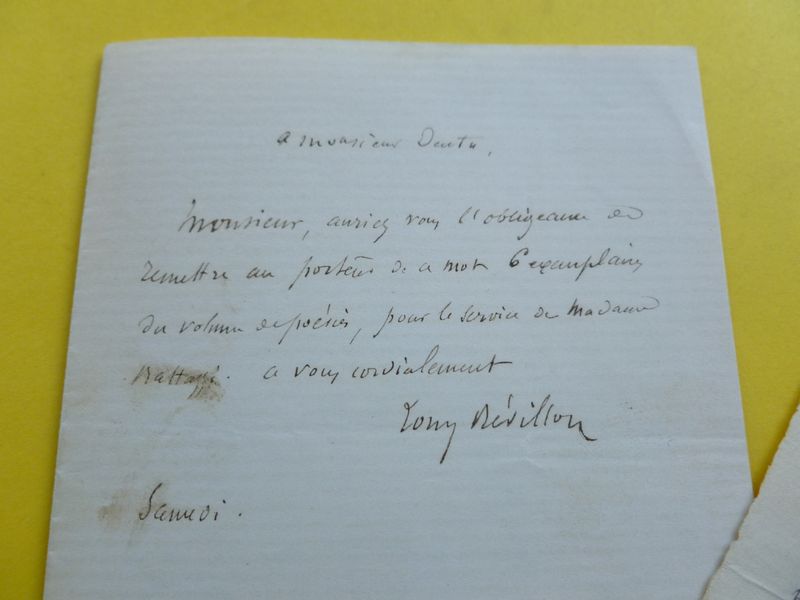 a monsieur Dentu,
Monsieur, auriez vous l'obligeance de
remettre au porteur de ce mot 6 exemplaires
du volume de poésies, pour le service de Madame
Rattazzi. a vous cordialement
Tony Révillon
Samedi.